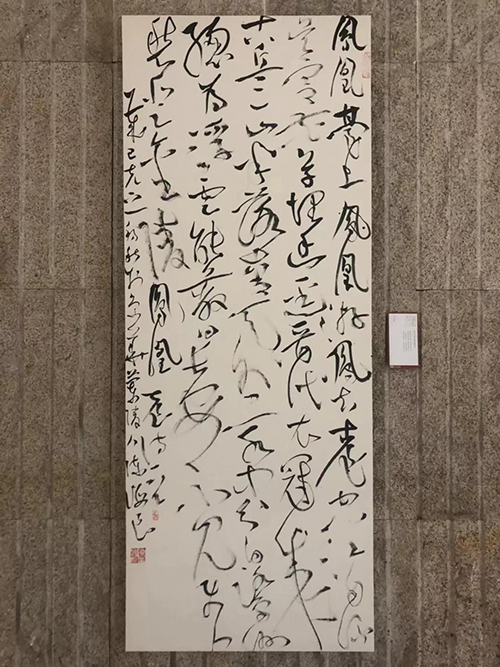 鳳凰臺上鳳凰遊鳳去臺空江自流
吳宮花草埋幽徑晉代衣冠成
古丘三山半落青天外二水中分白鷺洲
總為浮雲能蔽日長安不見使人
愁 金陵鳳凰臺詩一首
初秋於京華蘭陵人陳海良